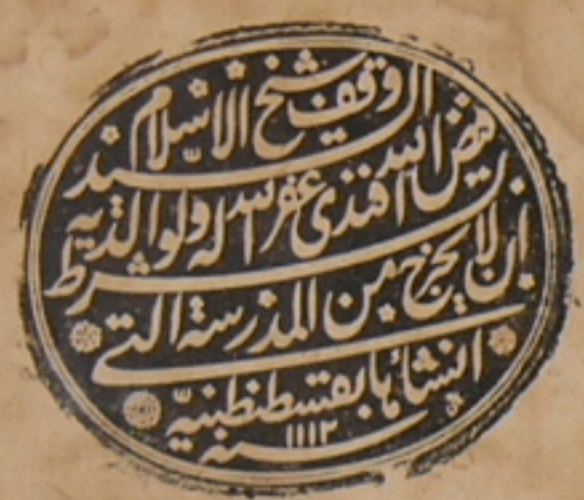 وقف شيخ الاسلام السيد
فيض الله افندى غفر الله له ولوالديه
بشرط ان لا يخرج من المدرسة التى
انشأها بقسطنطنية
سنه ١١١٢